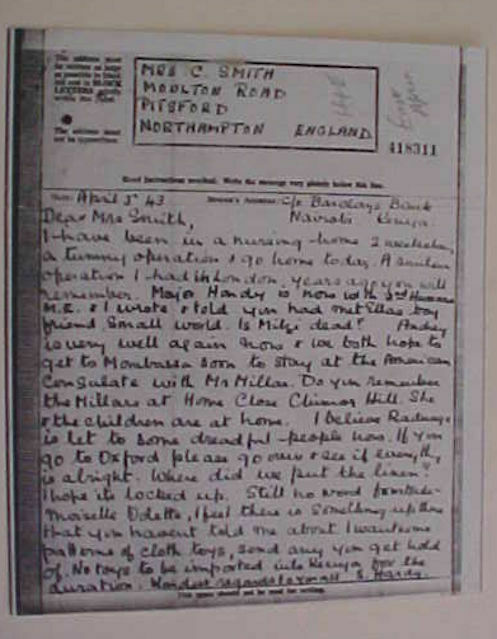 The address must
be written as large
as possible in black
ink and in BLOCK
LETTERS
within the
The address must
not be typewritten.
MRS C. SMITH
MOULTON ROAD
PITSFORD
NORTHAMPTON ENGLAND
East
Africa
418311
Write the message very plainly below this line.
April 3rd 43
Sender's Address: C/o Barclays Bank
Nairobi Kenya.
Dear Mrs Smith,
I have been in a nursing home 2 weeks
a tummy operation & go home today. A similar
operation I had in London, years ago you will
remember. Major Hardy is now with 3rd Hussars
M.E. & I wrote & told you had met Ellas boy
friend. Small world. Is Mitzi dead? Audrey
is very well again now & we both hope to
get to Mombassa soon to stay at the American
Consulate with Mr Millar. Do you remember
the Millars at Home Close Hill. She
& the children are at home. I believe
is let to some dreadful people now. If you
go to Oxford please go over & see if everything
is alright. Where did we put the linen?
I hope its locked up. Still no word from Made-
moiselle Odette, I feel there is something up there
that you havent told me about. I want some
patterns of cloth toys, send any you get hold
of. No toys to be imported into Kenya for the
duration. Kindest regards to all S. Hardy.
This space should not be used for writing.